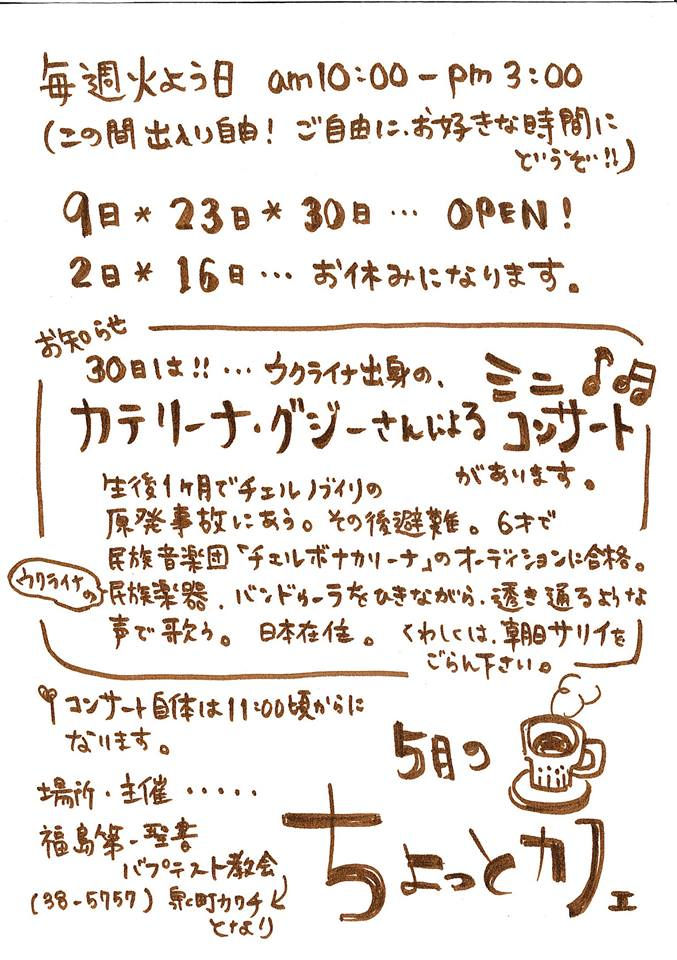 毎週火よう日 am10:00-pm3:00
(この間出入り自由! ご自由に、お好きな時間に
どうぞ!!)
9日*23日*30日… OPEN!
2日*16日… お休みになります。
お知らせ
30日は!!… ウクライナ出身の、
カテリーナ・グジーさんによる ミニコンサート
があります。
生後1ヶ月でチェルノブイリの
原発事故にあう。その後避難。6才で
民族音楽団「チェルボナカリーナ」のオーディションに合格。
ウクライナの
民族楽器、バンドゥーラをひきながら、透き通るような
声で歌う。 日本在住。 くわしくは、朝日サリイを
ごらん下さい。
コンサート自体は11:00頃からに
なります。
場所・主催・・・・・
福島第一聖書
バプテスト教会
(38-5757) 泉町カワチ
となり
5月の
ちょっとカフェ